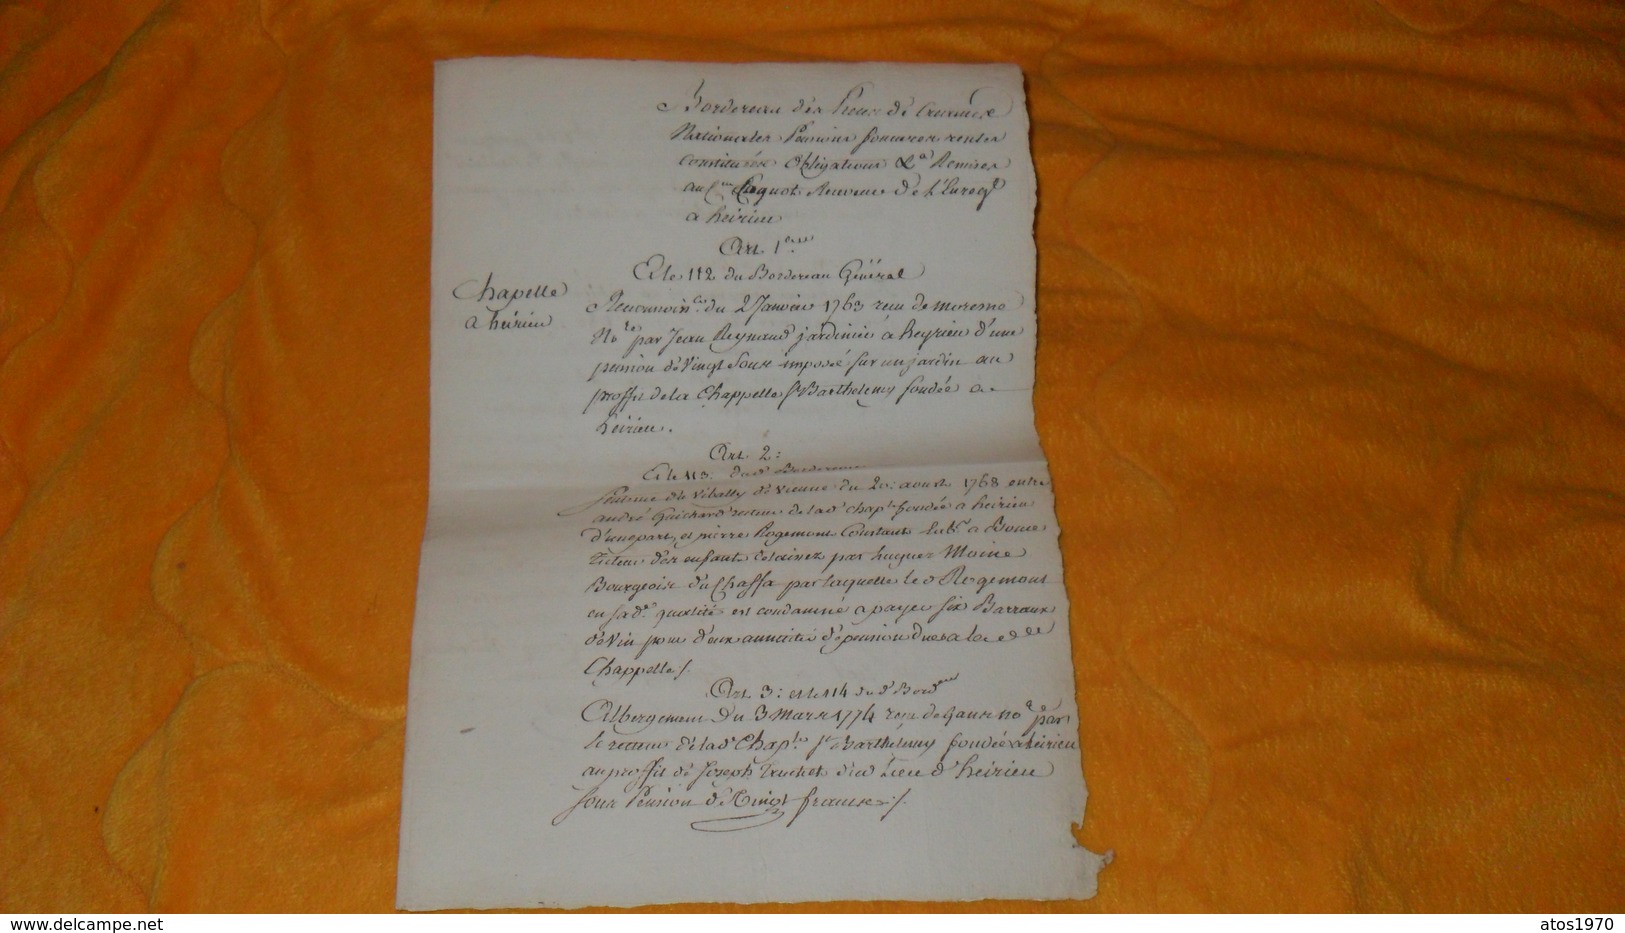 Bordereau des Titres de Creances
Nationales Pensions foncieres rentes
Constituées Obligations &a Remises
au Cen Coquot Receveur de l'Enregt
a heirieu
Art. 1er
Et le 112 du Bordereau Général
Chapelle
a heirieu
Reconnoisce du 2 Janvier 1763 recu de moremo
Nore par Jean Reynaud jardinier a heyrieu d'une
pension de vingt Sous imposée sur un jardin au
proffit de la Chappelle St Barthelemy fondée a
heirieu.
Art. 2:
Et le 113: dud Bordereau
Sentence du Vibally de Vienne du 20: aoust 1768 entre
andré Guichard recteur de lad Chaple fondée a heirieu
d'une part, et pierre Rogemont Constant habt a Bonce
Tuteur des enfant delaissez par hugues Moine
Bourgeois du Chaffa par laquelle led Rogemont
en sad qualité est condamné a payer six Barraux
de Vin pour deux annuités de pension dues a lad
Chappelle /.
Art. 3: et le 114 dud Bordeau
Albergement du 3 Mars 1774 recu de Gaux nore par
le recteur de lad Chaple St Barthélemy fondée a heirieu
au proffit de Joseph Truchet dud Lieu d'heirieu
sous Pension de Vingt francs /.
atos1970
delcampe.net